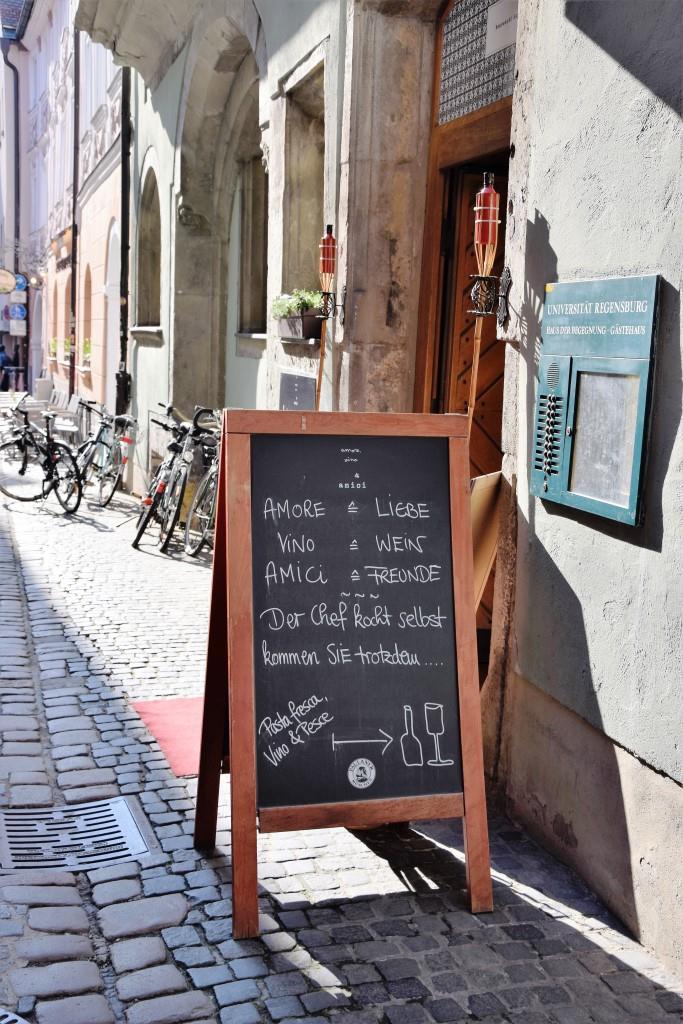 UNIVERSITÄT REGENSBURG
HAUS DER BEGEGNUNG · GÄSTEHAUS
amore,
vino
&
amici
AMORE ≙ LIEBE
VINO ≙ WEIN
AMICI ≙ FREUNDE
~ ~ ~
Der Chef kocht selbst
kommen SIE trotzdem ....
Pasta fresca,
Vino & Pesce